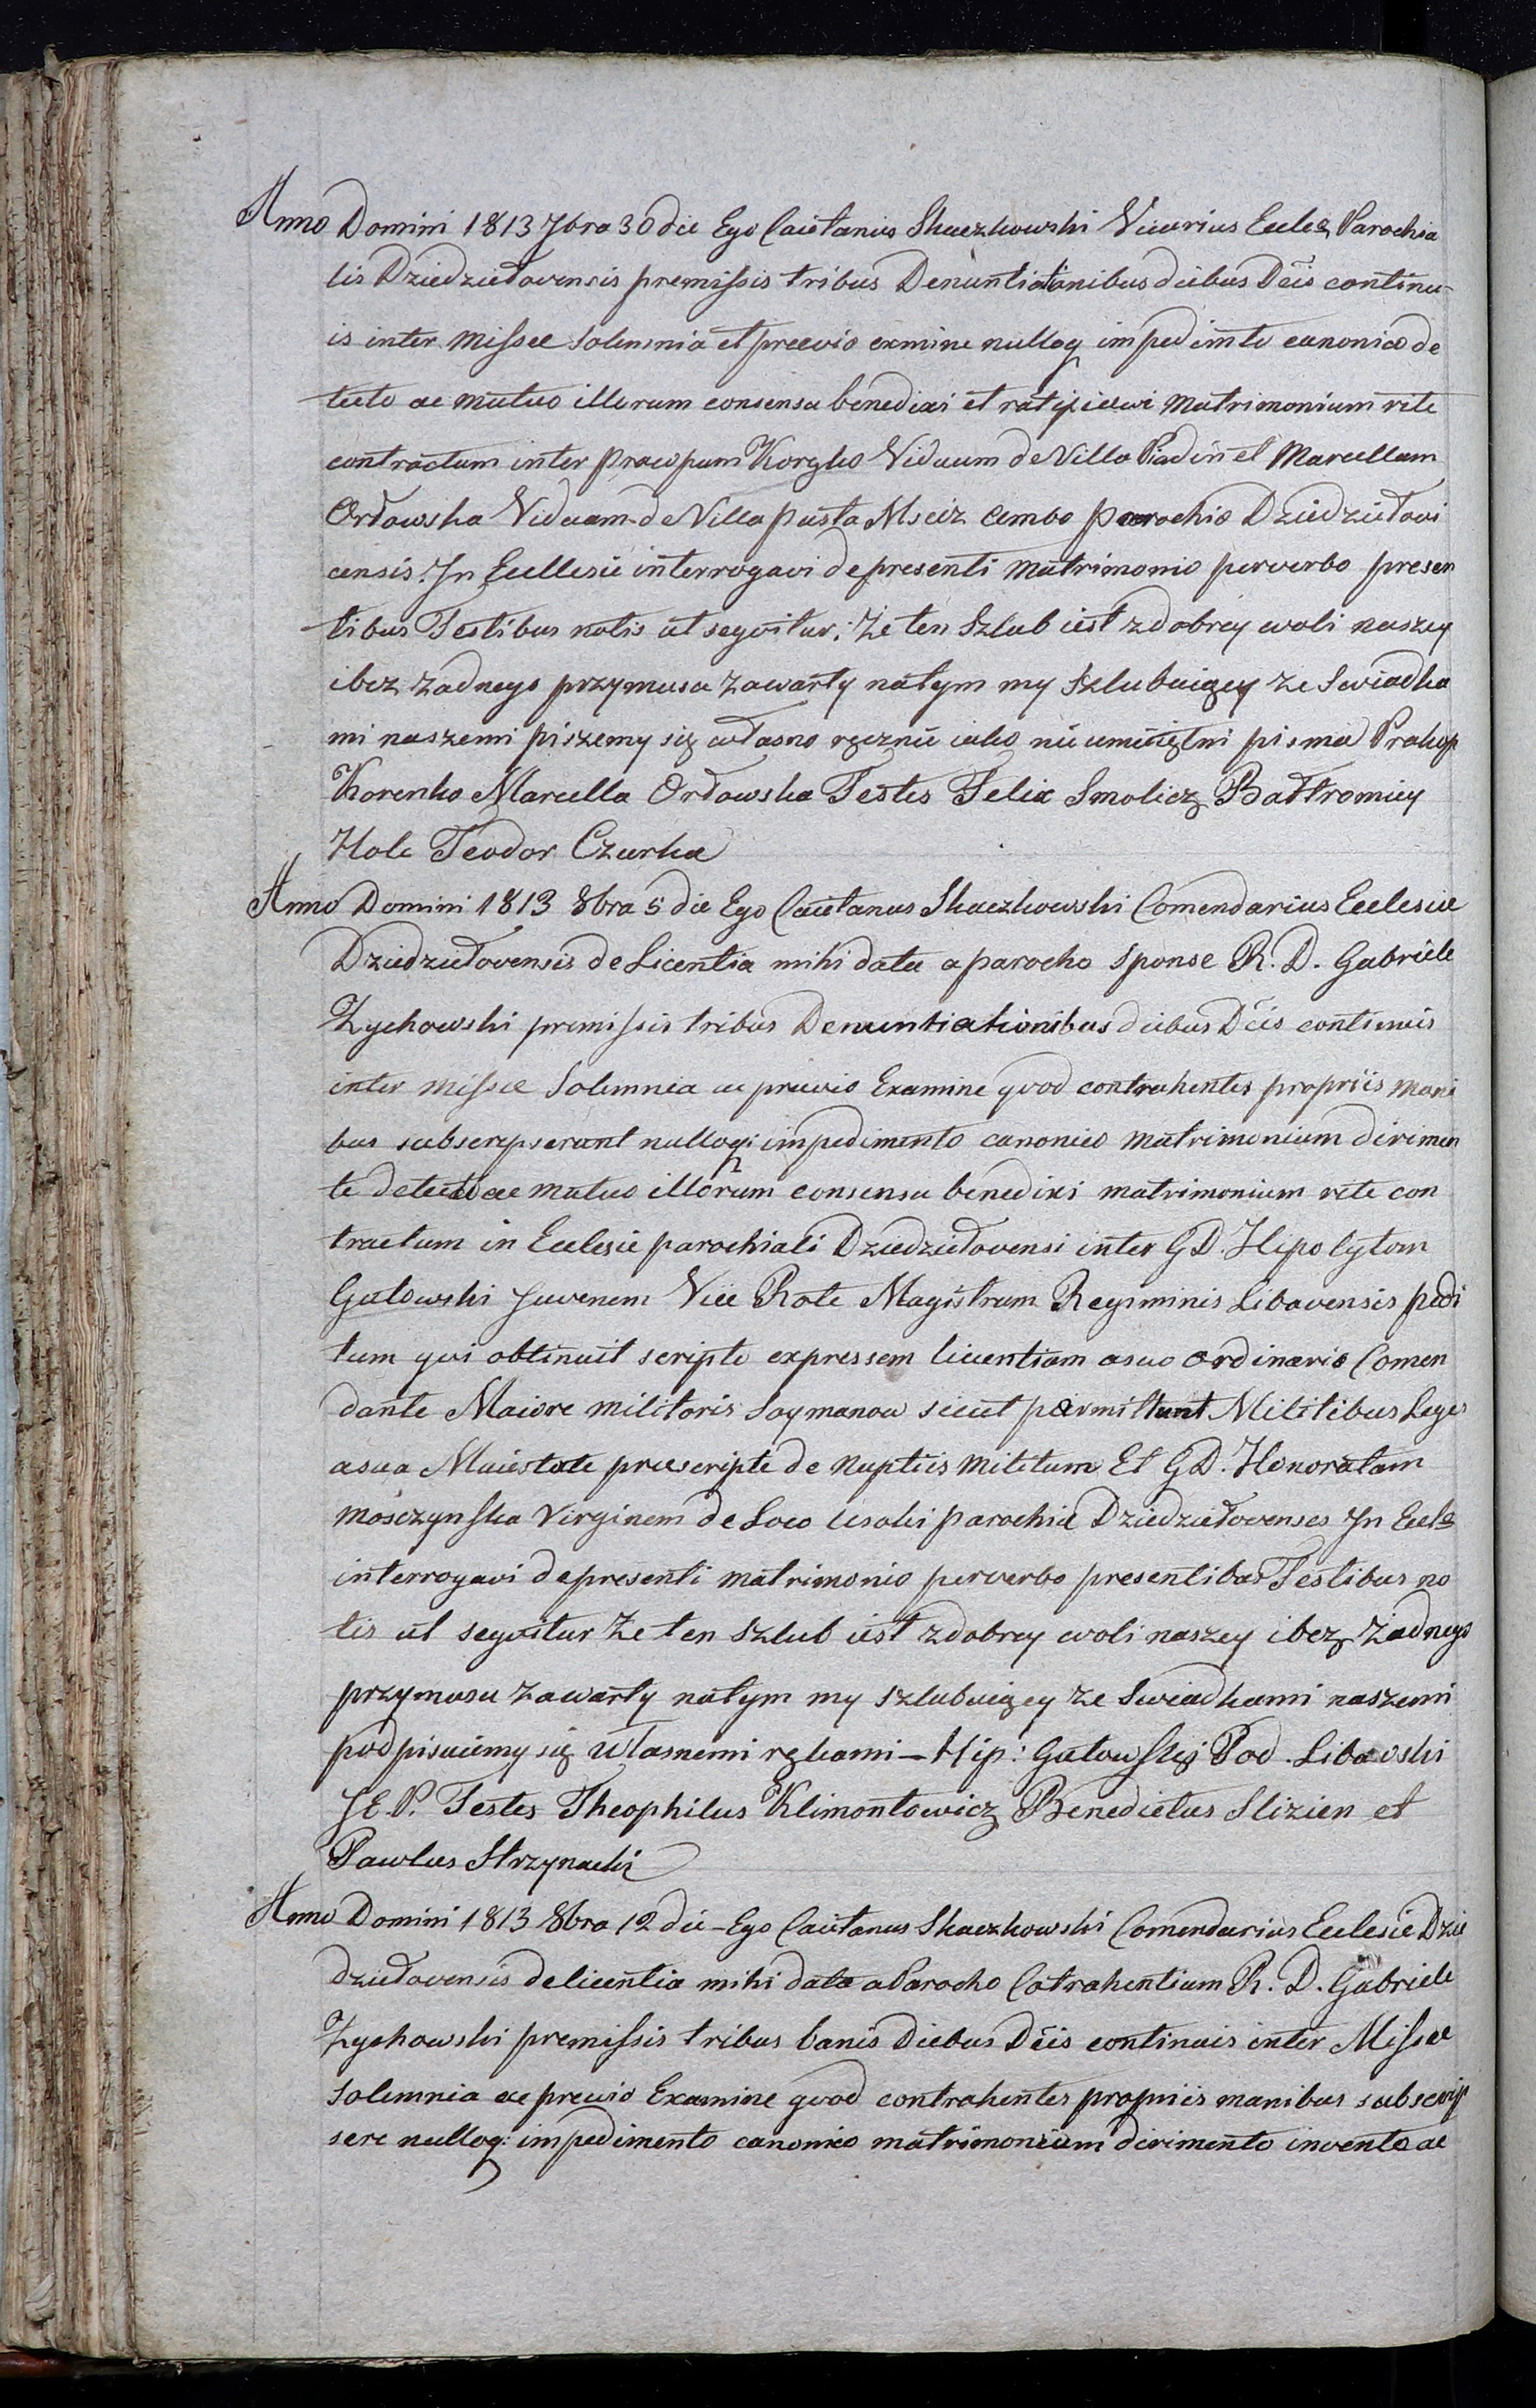 Anno Domini 1813 7bra 30 die Ego Caietanus Skaczkowski Vicarius Eccles Parochia
lis Dziedziełovensis premissis tribus Denuntiationibus diebus Dcis continu-
is inter Missae Solemnia et praevio exmine nulloq impedimto canonico de
tecto ac mutuo illorum consensu benedixi et ratificavi Matrimonium rite
contractum inter Viduum de Villa et Marcellam
Orłowska Viduam de Villa pusta Msciz Ambo parochia Dziedziełovi
censis. In Ecclesie interrogavi de presenti Matrimonio per verbo presen
tibus Testibus notis ut seqvitur; Że ten Szlub iest z dobrey woli naszey
i bez żadnego przymusu zawarty natym my Szlubuiący ze Swiadka
mi naszemi piszemy się własno ręcznie iako nie umieiętni pisma Prakop
Korenko Marcella Orłowska Testes Felix Smolicz Bałtromiey
Hole Teodor Czurka
Anno Domini 1813 8bra 5 die Ego Caietanus Skaczkowski Comendarius Ecclesiae
Dziedziełovensis de Licentia mihi data a parocho Sponse R. D. Gabriele
Zychowski premissis tribus Denuntiationibus diebus Dcis continuis
inter Missae Solemnia ac previo Examine qvod contrahentes propriis mani
bus subscripserunt nulloq: impedimento canonico matrimonium dirimen
te detecto ac mutuo illorum consensu benedixi matrimonium rite con
tractum in Ecclesie parochiali Dziedziełovensi inter GD. Hipolytom
Gutowski Juvenem Vice Rote Magistrum Regiminis Libavensis pedi
tum qvi obtinuit scripto expressem licentiam a suo ordinario Comen
dante Maiore militaris Soymanow sicut permittunt Militibus Leges
a sua Maiestate praescripte de nuptiis militum Et GD. Honoratam
Mosczynska Virginem de Loco Usoki parochia Dziedziełovenses In Eccls
interrogavi de presenti matrimonio per verbo presentibus Testibus no
tis ut seqvitur Że ten Szlub iest z dobrey woli naszey i bez Żadnego
przymusu zawarty natym my szlubuiący ze Swiadkami naszemi
podpisuiemy się własnemi rękami – Hip: Gutowski Pod. Libawski
J E. P. Testes Theophilus Klimontowicz Benedictus Slizien et
Pawlus Strzynacki
Anno Domini 1813 8bra 12 die – Ego Caietanus Skaczkowski Comendarius Ecclesie Dzie
dziełovensis de licentia mihi data a Parocho Cotrahentium R. D. Gabriele
Zychowski premissis tribus banis Diebus Dcis continuis inter Missae
Solemnia ac previo Examine qvod contrahentes propriis manibus subscrip
sere nulloq: impedimento canonico matrimonium dirimento invento ac